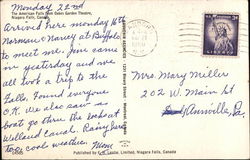 Monday, 22nd
The American Falls from Oakes Garden Theatre,
Niagara Falls, Canada.
Arrived here monday 16th
Norman & Nancy at Buffalo
to meet me. Jim came
in yesterday and we
all took a trip to the
Falls. Found everyone
O.K. we also saw a
boat go thru the locks at
Welland Canal. Rainy here
to be cool weather. Mom
Mrs. Mary Miller
202 W. Main St
Annville, Pa.
Published by F.H. Leslie, Limited, Niagara Falls, Canada